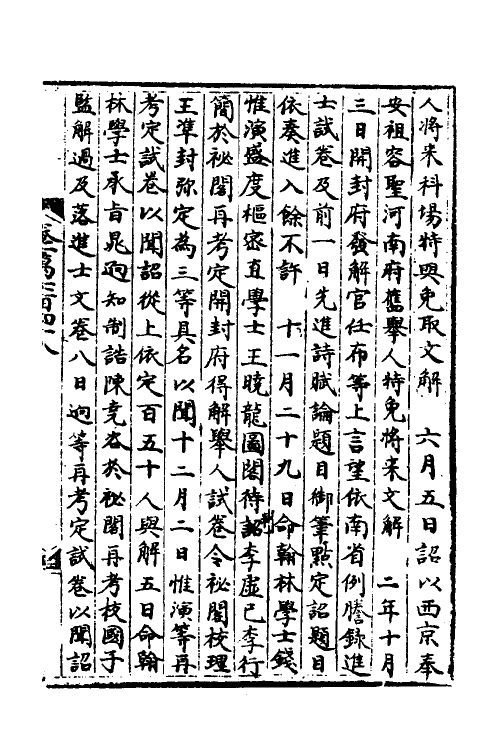 人將来科場特與免取文解　六月五日詔以西京奉
安祖宗聖容河南府舊舉人特免將来文解　二年十月
三日開封府發解官任布等上言望依南省例謄錄進
士試卷及前一日先進詩賦論題目御筆點定詔題目
依奏進入餘不許　十一月二十九日命翰林學士錢
惟演盛度樞密直學士王曉龍圖閣待制李虛己李行
簡於祕閣再考定開封府得解舉人試卷令祕閣校理
王準封弥定為三等具名以聞十二月二日惟演等再
考定試卷以聞詔從上依定百五十人與解五日命翰
林學士承旨晁迥知制誥陳堯咨於祕閣再考校國子
監解過及落進士文卷八日迥等再考定試卷以聞詔